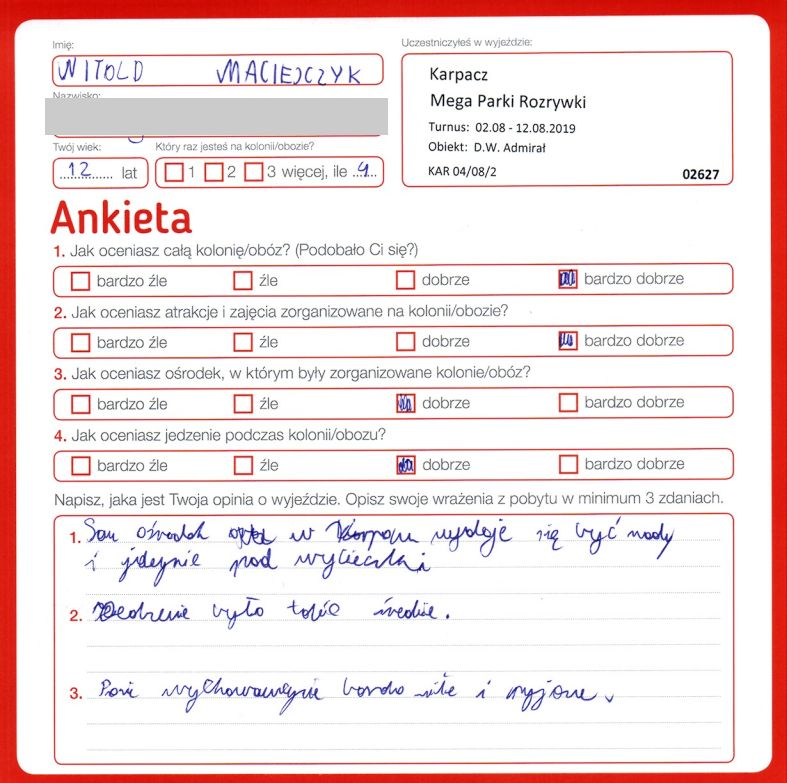 Imię:
WITOLD MACIEJCZYK
Nazwisko:
Twój wiek:
12 lat
Który raz jesteś na kolonii/obozie?
1 2 3 więcej, ile 4
Uczestniczyłeś w wyjeździe:
Karpacz
Mega Parki Rozrywki
Turnus: 02.08 - 12.08.2019
Obiekt: D.W. Admirał
KAR 04/08/2 02627
Ankieta
1. Jak oceniasz całą kolonię/obóz? (Podobało Ci się?)
bardzo źle źle dobrze bardzo dobrze
2. Jak oceniasz atrakcje i zajęcia zorganizowane na kolonii/obozie?
bardzo źle źle dobrze bardzo dobrze
3. Jak oceniasz ośrodek, w którym były zorganizowane kolonie/obóz?
bardzo źle źle dobrze bardzo dobrze
4. Jak oceniasz jedzenie podczas kolonii/obozu?
bardzo źle źle dobrze bardzo dobrze
Napisz, jaka jest Twoja opinia o wyjeździe. Opisz swoje wrażenia z pobytu w minimum 3 zdaniach.
1. Sam ośrodek w wydaje się być
i pod wycieczki
2. było takie średnie.
3. Panie bardo miłe i